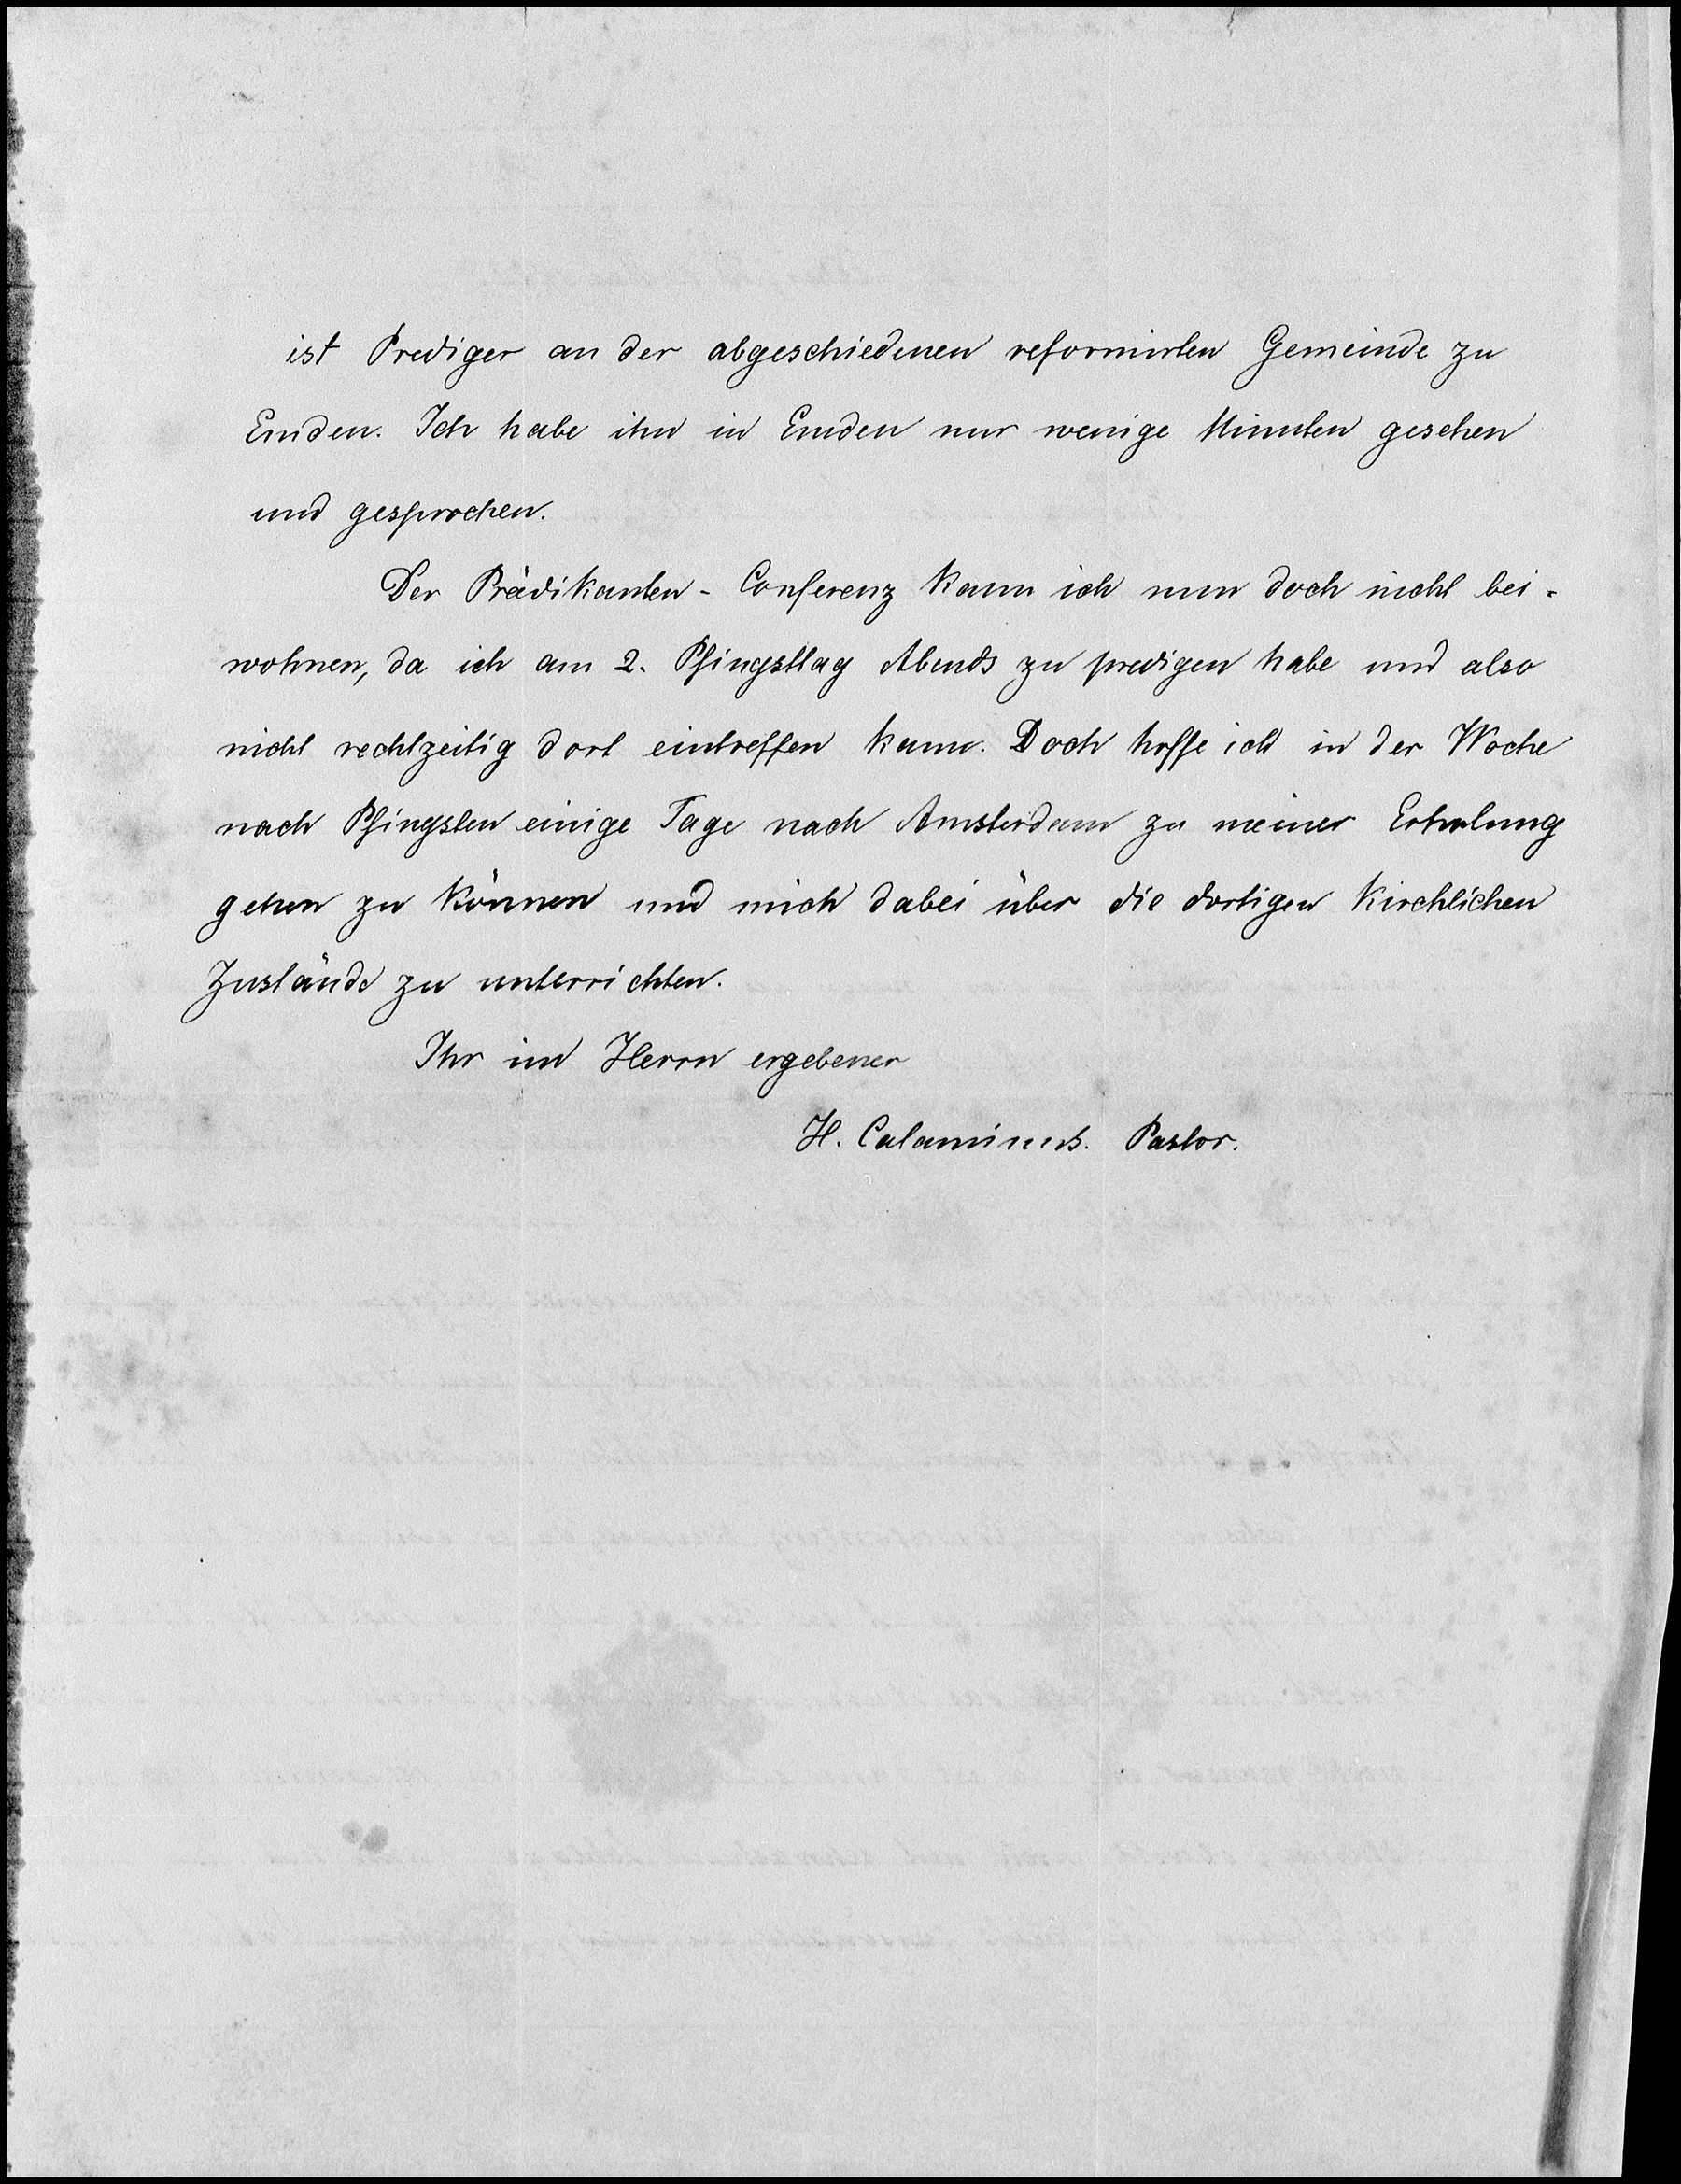 ist Prediger an der abgeschiedenen reformirten Gemeinde zu
Emden. Ich habe ihn in Emden nur wenige Minuten gesehen
und gesprochen.
Der Prädikanten-Conferenz kann ich nun doch nicht bei-
wohnen, da ich am 2. Pfingsttag Abends zu predigen habe und also
nicht rechtzeitig dort eintreffen kann. Doch hoffe ich in der Woche
nach Pfingsten einige Tage nach Amsterdam zu meiner Erholung
gehen zu können und mich dabei über die dortigen kirchlichen
Zustände zu unterrichten.
Ihr im Herrn ergebener
H. Calaminus. Pastor.